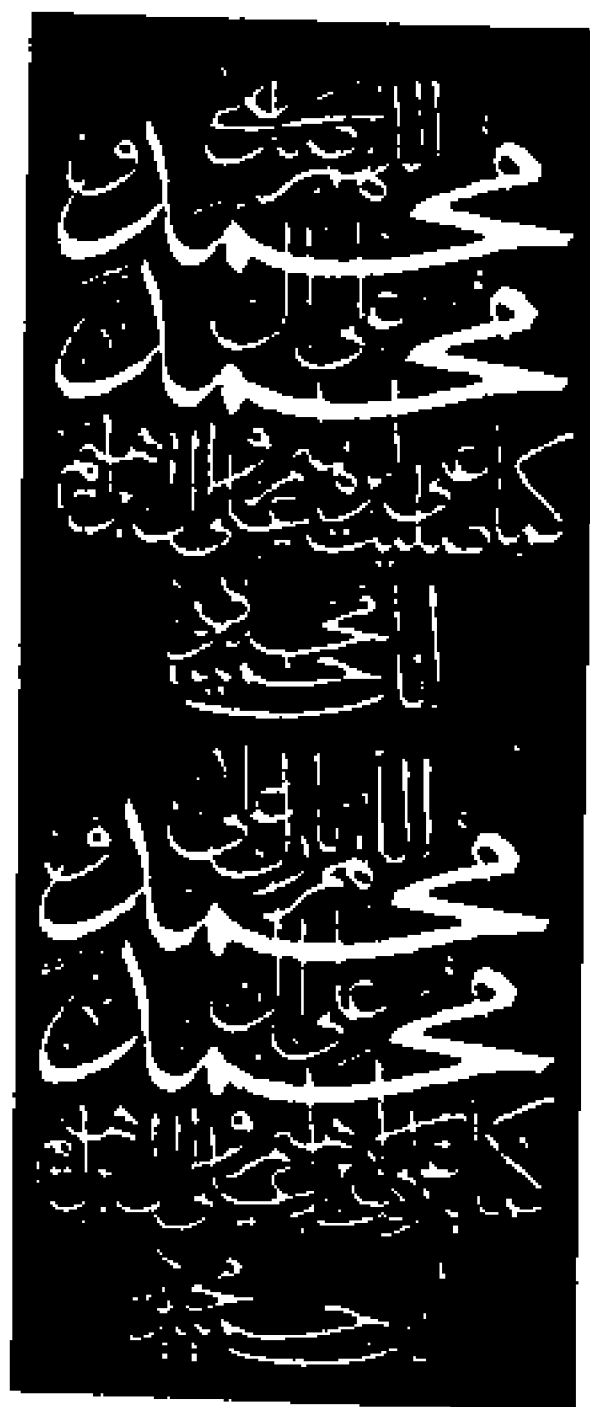 اللهم صل على محمد و
على آل محمد
كما صليت على إبراهيم وعلى آل إبراهيم
إنك حميد مجيد
اللهم بارك على محمد و
على آل محمد
كما باركت على إبراهيم وعلى آل إبراهيم
إنك حميد مجيد